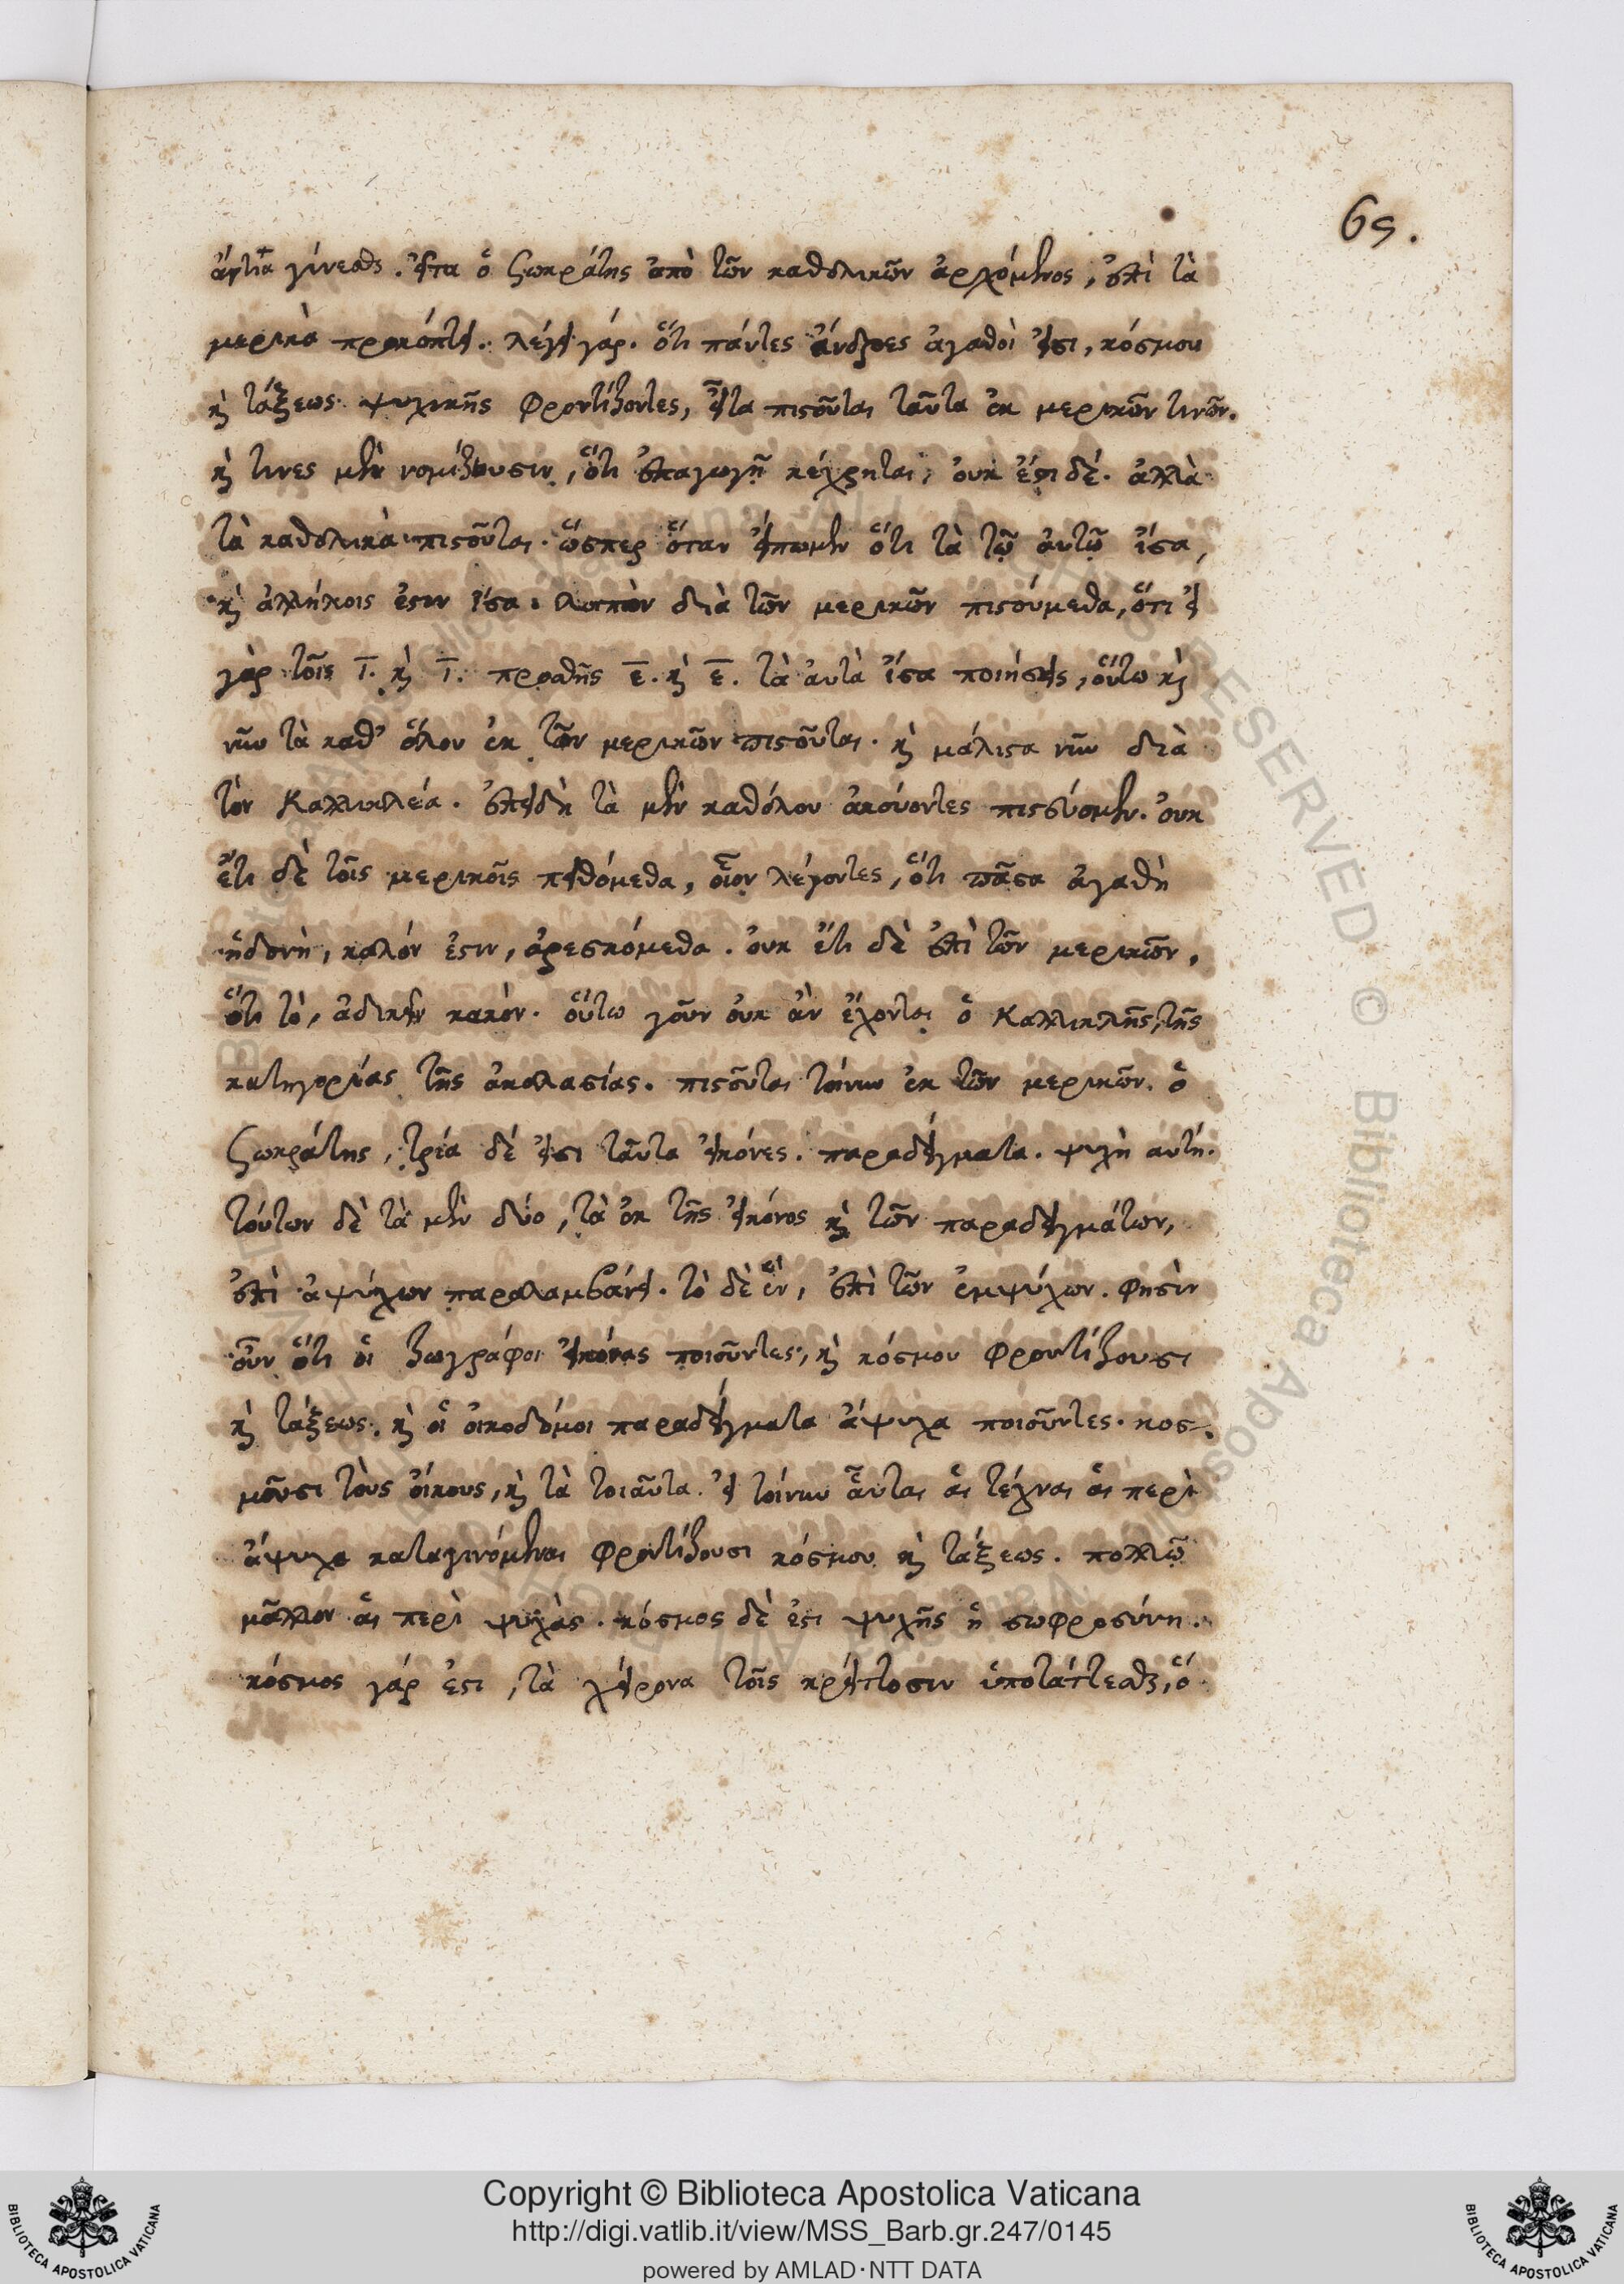 65.
γίνεσθαι. εἶτα ὁ Σωκράτης ἀπὸ τῶν καθολικῶν ἀρχόμενος, ἐπὶ τὰ
μερικὰ προκόπτει. λέγει γάρ. ὅτι πάντες ἄνδρες ἀγαθοὶ εἰσι, κόσμου
καὶ τάξεως ψυχικῆς φροντίζοντες, εἶτα πιστοῦται ταῦτα ἐκ μερικῶν τινῶν.
καὶ τινες μὲν νομίζουσιν, ὅτι ἐπαγωγῇ κέχρηται, οὐκ ἔστι δέ. ἀλλὰ
τὰ καθολικὰ πιστοῦται. ὥσπερ ὅταν εἴπωμεν ὅτι τὰ τῷ αὐτῷ ἴσα,
καὶ ἀλλήλοις ἐστιν ἴσα. λοιπὸν διὰ τῶν μερικῶν πιστούμεθα, ὅτι εἰ
γὰρ τοῖς ι. καὶ ι. προσθῇς ε. καὶ ε. τὰ αὐτὰ ἴσα ποιήσεις, οὕτω καὶ
νῦν τὰ καθ' ὅλου ἐκ τῶν μερικῶν πιστοῦται. καὶ μάλιστα νῦν διὰ
τὸν Καλλικλέα. ἐπειδὴ τὰ μὲν καθόλου ἀκούοντες πιστεύομεν. οὐκ
ἔτι δὲ τοῖς μερικοῖς πειθόμεθα, οἷον λέγοντες, ὅτι πᾶσα ἀγαθὴ
ἡδονὴ, καλόν ἐστιν, ἀρεσκόμεθα. οὐκ ἔτι δὲ ἐπὶ τῶν μερικῶν,
ὅτι τὸ, ἀδικεῖν κακόν. οὕτω γοῦν οὐκ ἀν ἔχονται ὁ Καλλικλῆς, τῆς
κατηγορίας τῆς ἀκολασίας. πιστοῦται τοίνυν ἐκ τῶν μερικῶν. ὁ
Σωκράτης, τρία δέ εἰσι ταῦτα εἰκόνες. παραδείγματα. ψυχὴ αυτή.
τούτων δὲ τὰ μὲν δύο, τὰ ἐκ τῆς εἰκόνος καὶ τῶν παραδειγμάτων,
ἐπὶ ἀψύχων παραλαμβάνει. τὸ δὲ ἓν, ἐπὶ τῶν ἐμψύχων. φησὶν
οὖν ὅτι οἱ ζωγράφοι εἰκόνας ποιοῦντες, καὶ κόσμου φροντίζουσι
καὶ τάξεως. καὶ οἱ οἰκοδόμοι παραδείγματα ἄψυχα ποιοῦντες. κοσ-
μοῦσι τοὺς οἴκους, καὶ τὰ τοιαῦτα. εἰ τοίνυν αὗται αἱ τέχναι αἱ περὶ
ἄψυχα καταγινόμεναι φροντίζουσι κόσμου καὶ τάξεως. πολλῷ
μᾶλλον αἱ περὶ ψυχὰς. κόσμος δὲ ἐστι ψυχῆς ἡ σωφροσύνη.
κόσμος γάρ ἐστι, τὰ χείρονα τοῖς κρείττοσιν ὑποτάττεσθαι, ὅ
Copyright © Biblioteca Apostolica Vaticana
http://digi.vatlib.it/view/MSS_Barb.gr.247/0145
powered by AMLAD·NTT DATA